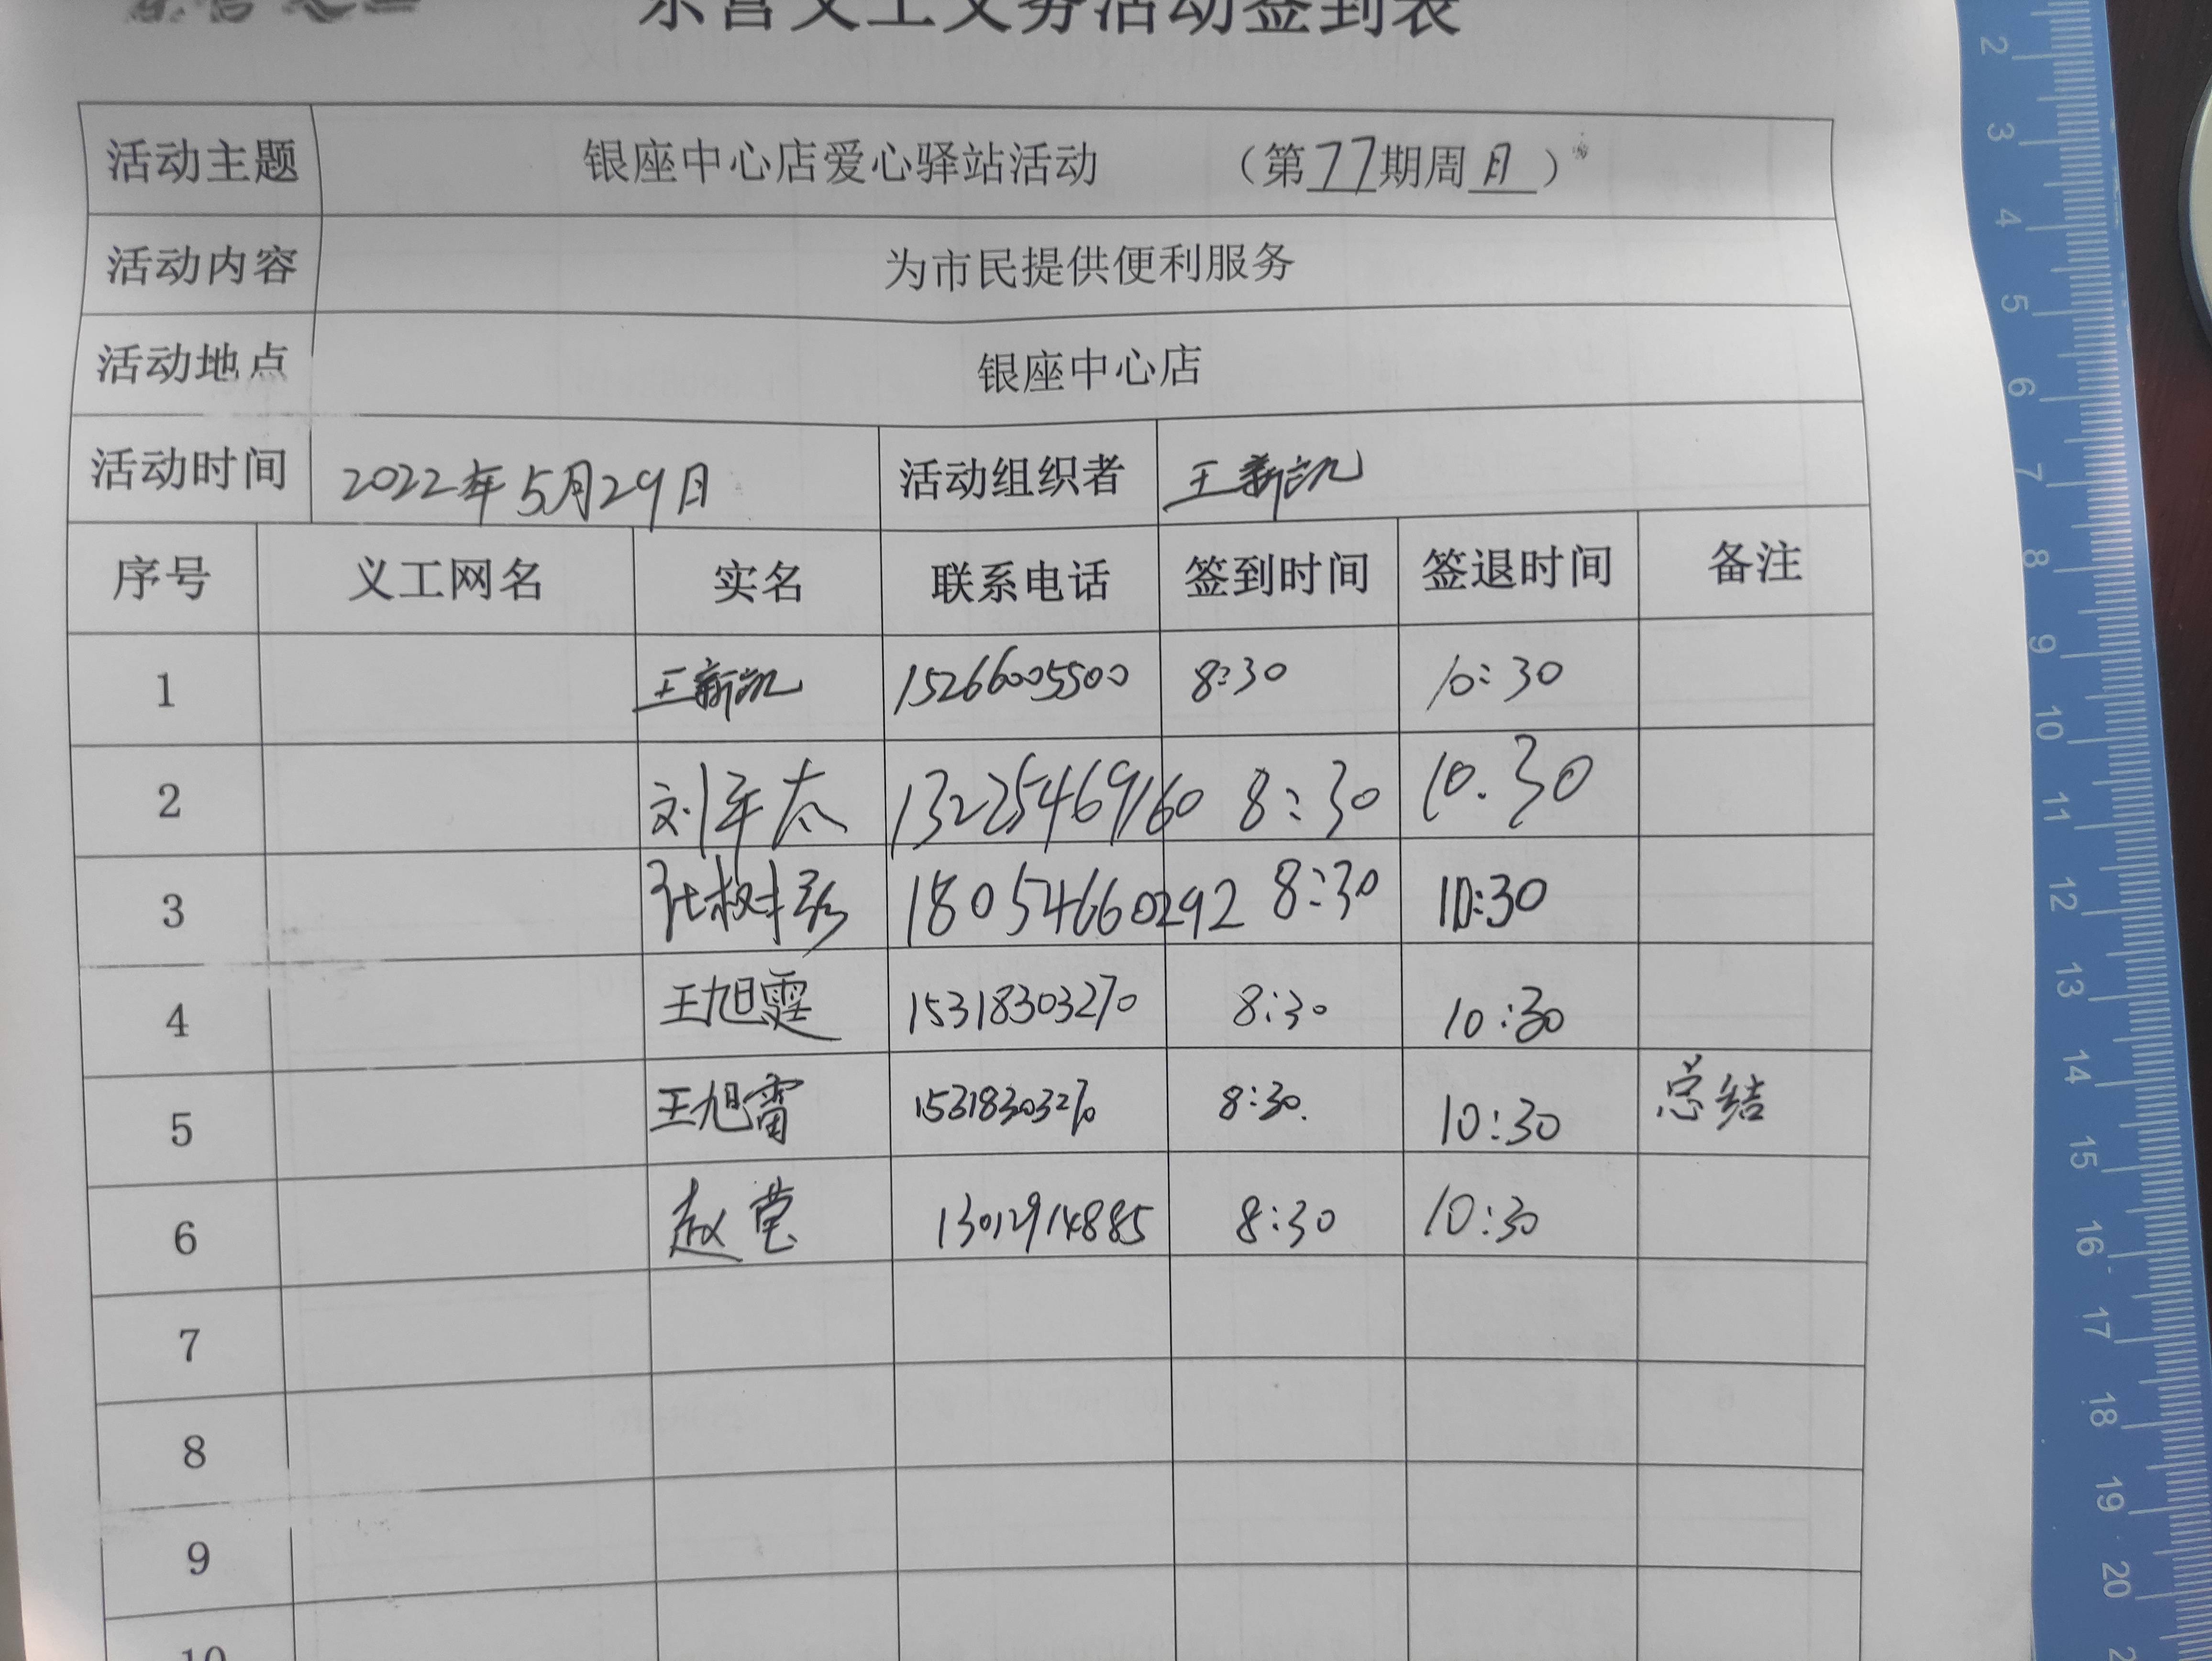 东营义工义务活动签到表
活动主题 银座中心店爱心驿站活动 （第77期周日）
活动内容 为市民提供便利服务
活动地点 银座中心店
活动时间 2022年5月29日 活动组织者 王新凯
序号 义工网名 实名 联系电话 签到时间 签退时间 备注
1 王新凯 15266005500 8:30 10:30
2 刘军太 13225469160 8:30 10.30
3 张树珍 18054660292 8:30 10:30
4 王旭霆 15318303270 8:30 10:30
5 王旭雷 15318303270 8:30. 10:30 总结
6 赵莹 13012914885 8:30 10:30
7
8
9
10
2
3
4
5
6
7
8
9
10
11
12
13
14
15
16
17
18
19
20